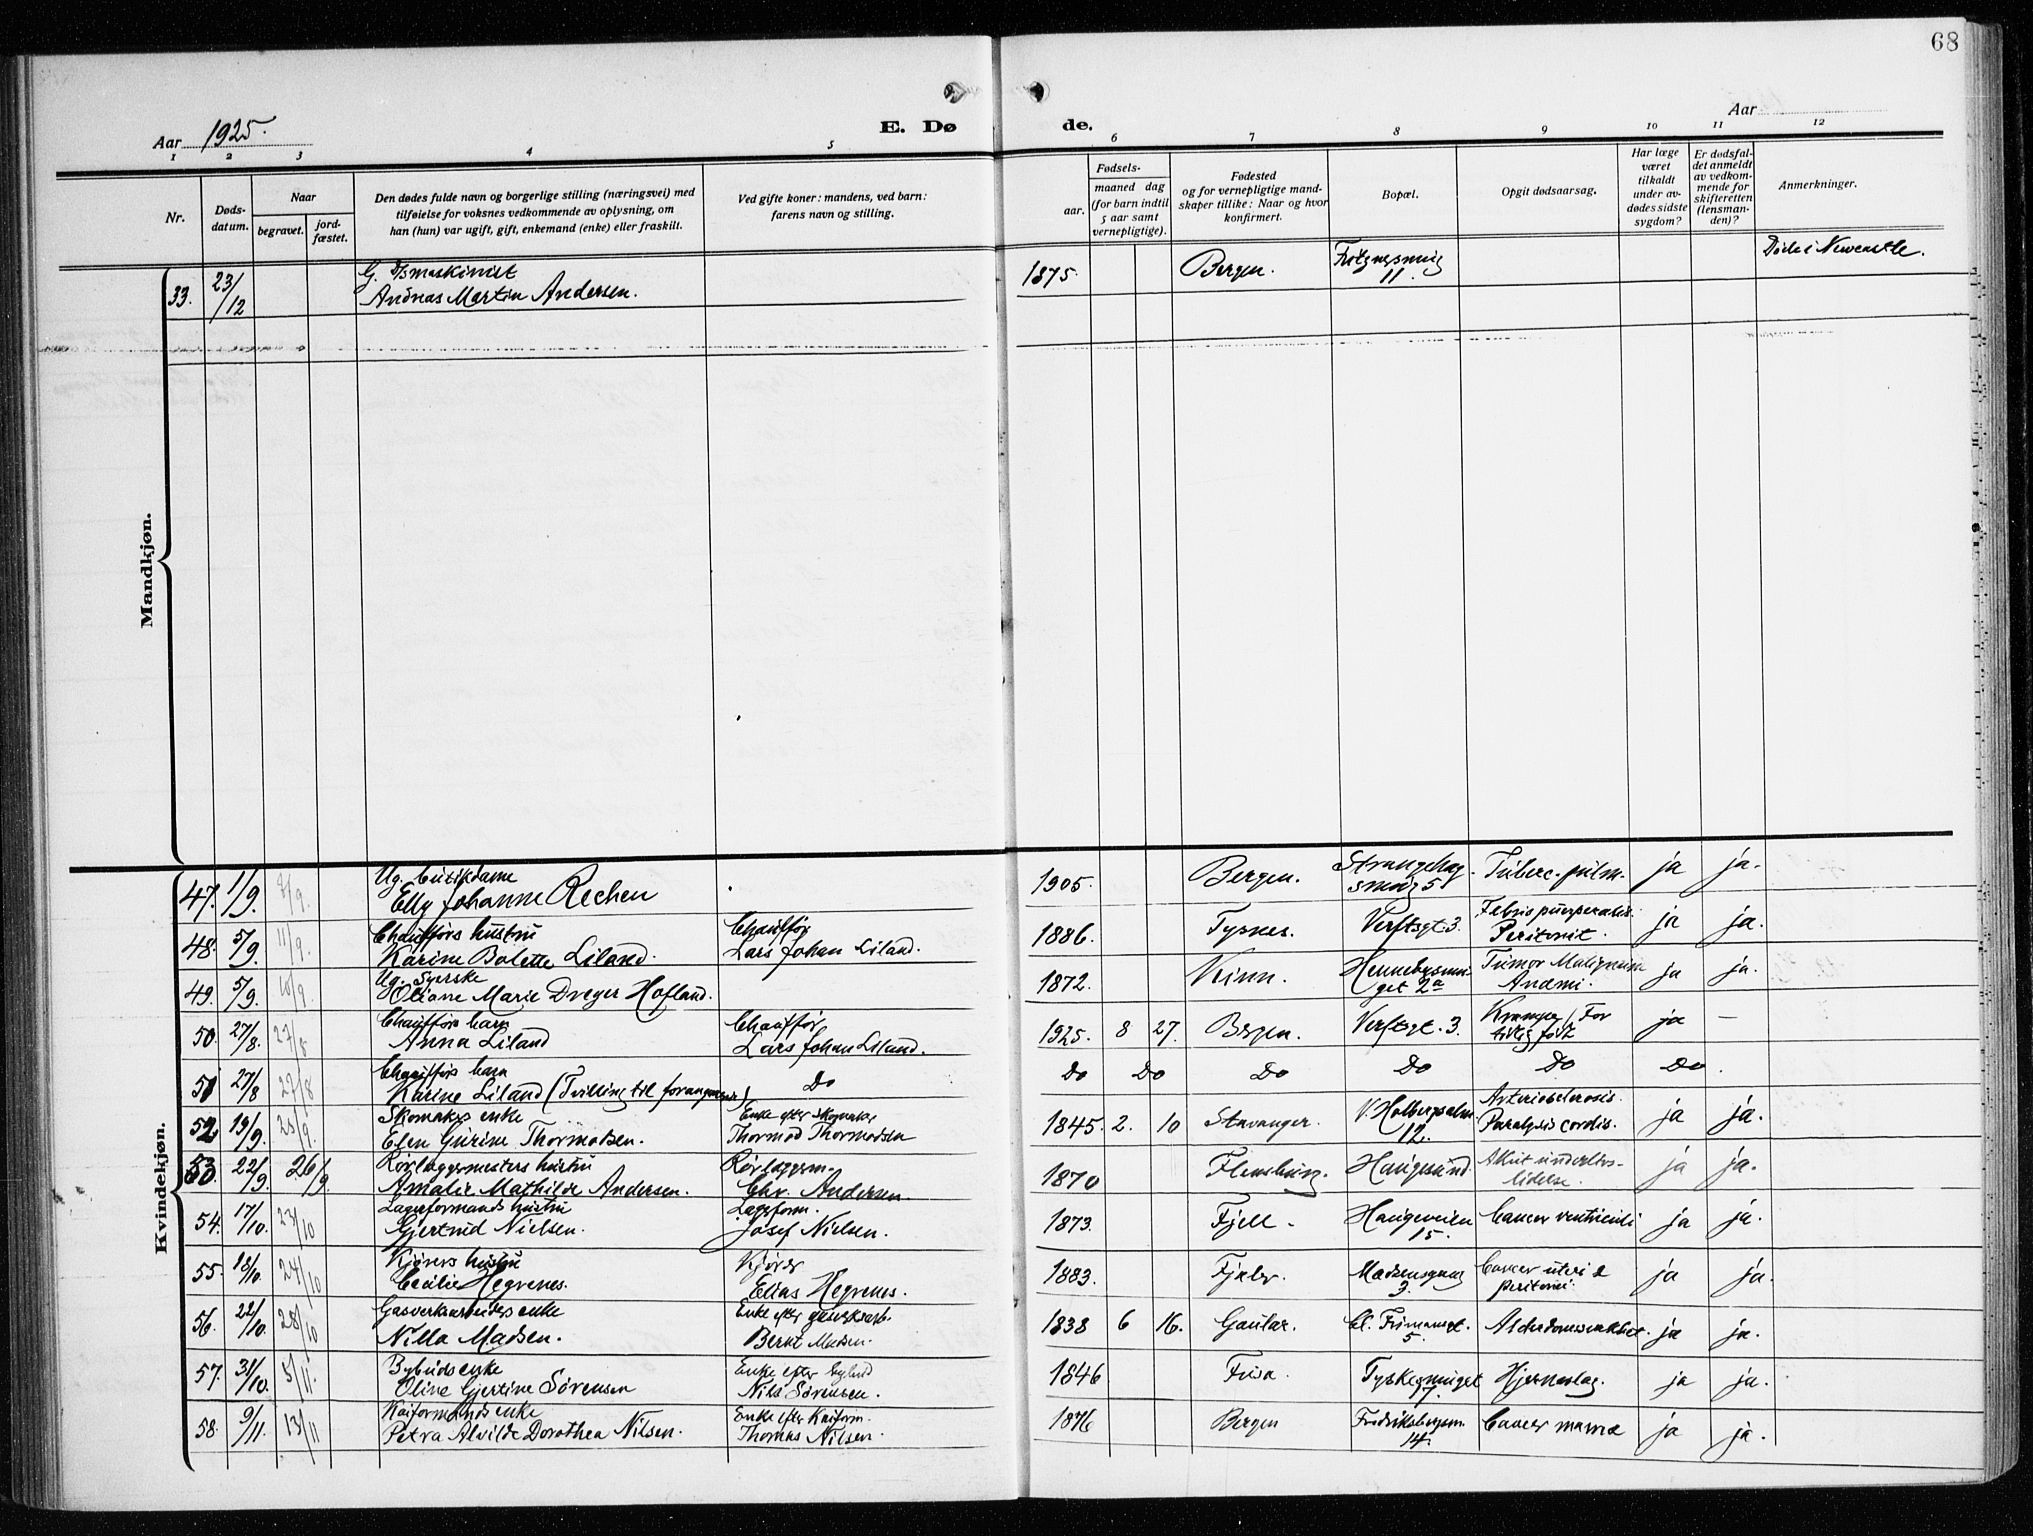 68
Aar 1925.
E. Døde.
Aar
1 2 3 4 5 6 7 8 9 10 11 12
Nr.
Dødsdatum.
Naar
begravet.
jordfæstet.
Den dødes fulde navn og borgerlige stilling (næringsvei) med
tilføielse for voksnes vedkommende av oplysning, om
han (hun) var ugift, gift, enkemand (enke) eller fraskilt.
Ved gifte koner: mandens, ved barn:
farens navn og stilling.
Fødsels-
aar.
maaned dag
(for barn indtil
5 aar samt
vernepligtige).
Fødested
og for vernepligtige mand-
skaper tillike: Naar og hvor
konfirmert.
Bopæl.
Opgit dødsaarsag.
Har læge
været
tilkaldt
under av-
dødes sidste
sygdom?
Er dødsfal-
det anmeldt
av vedkom-
mende for
skifteretten
(lensman-
den)?
Anmerkninger.
Mandkjøn.
33. 23/12 G. maskinist
Andreas Martin Andersen. 1875. Bergen. 11. Døde i Newcastle.
Kvindekjøn.
47. 1/9. 8/9. Ug. butikdame
Elly Johanne Rechen 1905. Bergen. Strangehag-
smug 5 Tuberc. pulm. ja ja.
48. 5/9. 11/9. Chaufførs hustru
Karine Bolette Liland. Chauffør
Lars Johan Liland. 1886. Tysnes. Verftsgt. 3. Febris puerperalis.
Peritonit. ja ja.
49. 5/9. 10/9. Ug. Syerske
Oliane Marie Dreyer Hofland. 1872. Kinn. 2a Tumor Malignum ja ja.
50. 27/8. 27/8 Chaufførs barn
Anna Liland Chauffør
Lars Johan Liland. 1925. 8 27. Bergen. Verftsgt. 3. Kramper / For
tidlig født ja —
51 27/8 27/8 Chaufførs barn
Karine Liland (Tvilling til foranganer) Do Do Do Do Do Do Do.
52. 19/9. 25/9. Skomakers enke
Elen Gurine Thormodsen. Enke efter Skomaker
Thormod Thormodsen 1845. 2. 10 Stavanger. V. Holbergsalm.
12. Arteriosclerosis.
Paralysis cordis. ja ja.
53. 22/9. 26/9. Rørlæggermesters hustru
Amalie Mathilde Andersen. Rørlæggerm.
Chr. Andersen. 1870 Flensburg. Haugesund. Akut underlivs-
lidelse. ja ja.
54. 17/10. 23/10 Lagerformands hustru
Gjertrud Nielsen. Lagerform.
Josef Nielsen. 1873. Fjell. Haugeveien
15. Cancer ventriculi ja ja.
55. 18/10. 24/10 Kjørers hustru
Cecilie Hegrenes. Kjører
Elias Hegrenes. 1883. Fjaler. Madsensgang
3. Cancer uteri &
peritonei. ja ja.
56. 22/10. 28/10 Gasverksarbeiders enke
Nilla Madsen. Enke efter gasverksarb.
Bernt Madsen. 1838 6 16. Gaular. Cl. Frimansgt.
5. Alderdomssvakhet. ja ja.
57. 31/10. 5/11. Bybuds enke
Oline Gjertine Sørensen Enke efter bybud
Nils Sørensen. 1846 Fusa. Tyskesmuget
7. Hjerneslag. ja ja.
58. 9/11. 13/11 Kaiformands enke
Petra Alvilde Dorothea Nilsen. Enke efter Kaiform.
Thomas Nilsen. 1876 Bergen Fredriksbergsm.
14. Cancer mamæ ja ja.